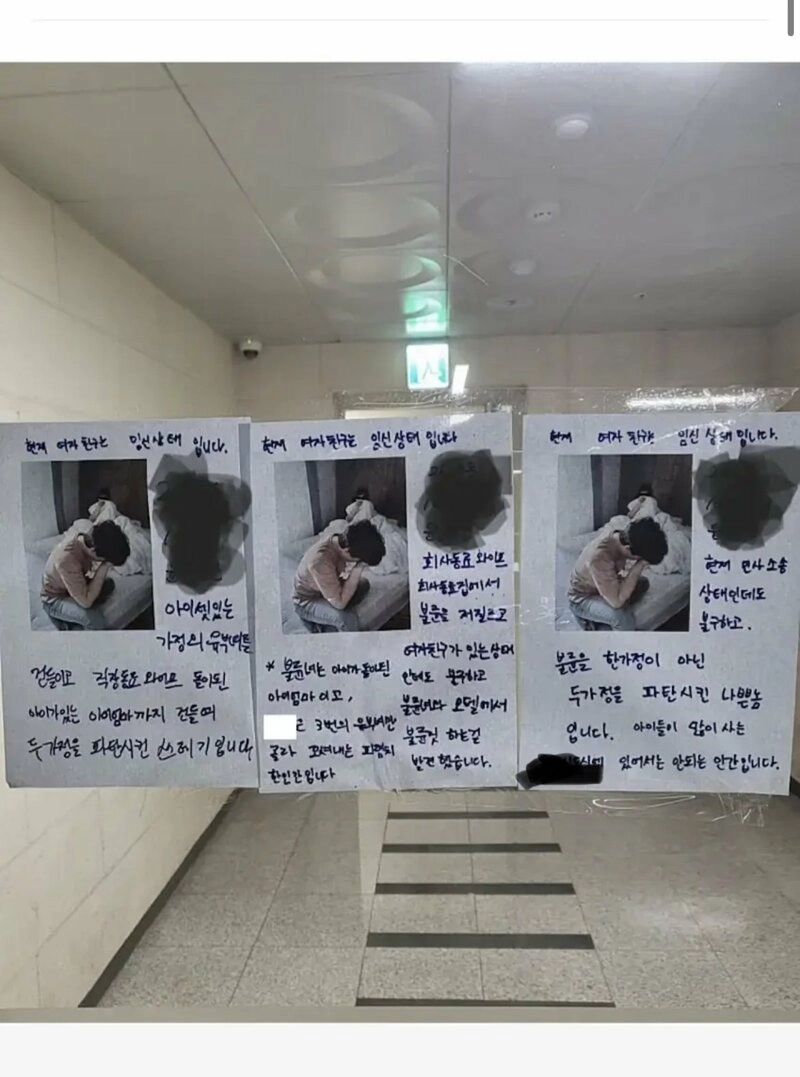 현재 여자친구는 임신상태 입니다.
아이셋있는
가정의 유부녀를
건들이고 직장동료 와이프 돌이된
아이가있는 아이엄마까지 건들여
두가정을 파탄시킨 쓰레기입니다
현재 여자친구는 임신상태 입니다
회사동료 와이프
회사동료집에서
불륜을 저질르고
여자친구가 있는상태
인데도 불구하고
불륜녀와 모텔에서
불륜짓 하는걸
발견했습니다.
* 불륜녀는 아이가돌이된
아이엄마이고,
은 3번의 유부녀만
골라 꼬셔내는 파렴치
한인간입니다
현재 여자친구는 임신상태 입니다.
현재 민사소송
상태인데도
불구하고.
불륜을 한가정이 아닌
두가정을 파탄시킨 나쁜놈
입니다. 아이들이 많이 사는
있어서는 안되는 인간입니다.